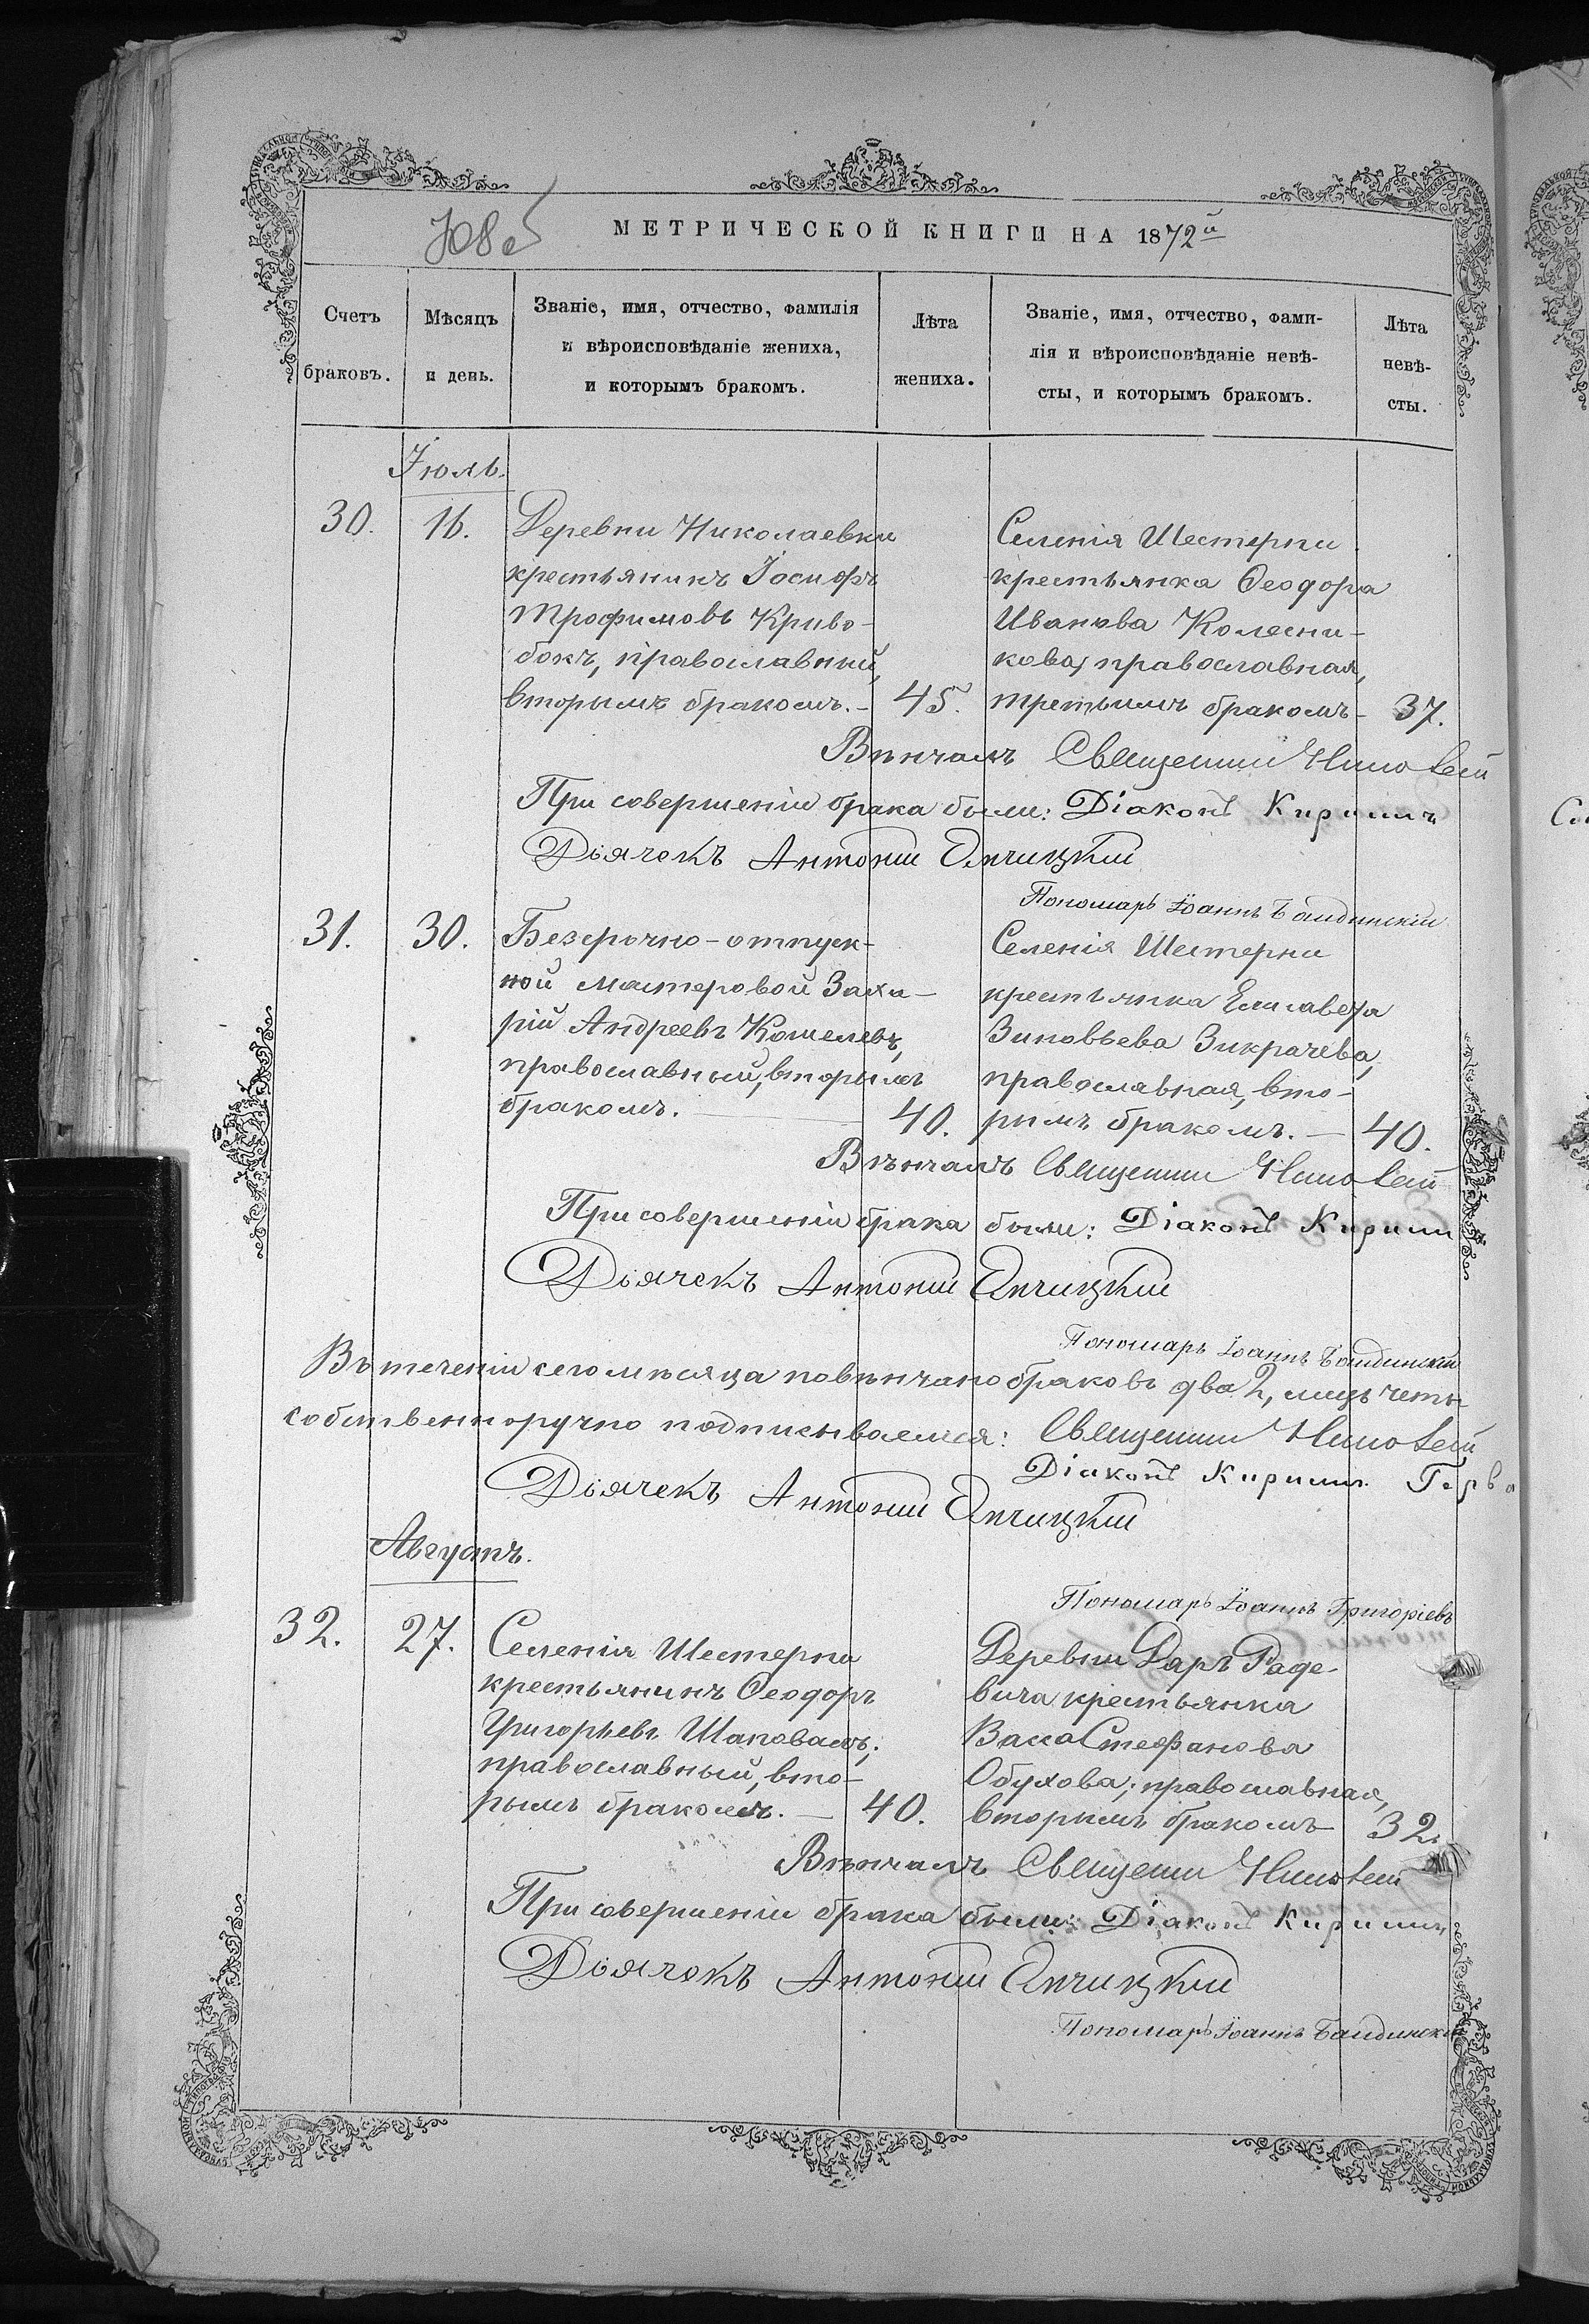 МЕТРИЧЕСКОЙ КНИГИ НА 1872й
Счетъ браковъ.
Мѣсяцъ и день.
Званіе, имя, отчество, фамилія
и вѣроисповѣданіе жениха,
и которымъ бракомъ.
Лѣта жениха.
Званіе, имя, отчество, фами-
лія и вѣроисповѣданіе невѣ-
сты, и которымъ бракомъ.
Лѣта невѣ-
сты.
Іюль.
30.
16.
Деревни Николаевки
крестьянинъ Іосифъ
Трофимовъ Криво-
бокъ, православный,
вторымъ бракомъ. -
45.
Селенія Шестерни
крестьянка Ѳеодора
Иванова Колесни-
кова, православная,
третьимъ бракомъ -
37.
Вѣнчалъ Священник
При совершеніи брака были: Діаконъ Кириллъ
Дьячекъ Антоній
Пономарь Іоаннъ
31.
30.
Безсрочно-отпуск-
ной мастеровой Заха-
рій Андреевъ Кошелевъ,
православный, вторымъ
бракомъ.
40.
Селенія Шестерни
крестьянка Елисавета
Зиновьева Зикрачева,
православная, вто-
рымъ бракомъ. —
40.
Вѣнчалъ Священник
При совершеніи брака были: Діаконъ Кирилл
Дьячекъ Антоній
Пономарь Іоаннъ
Въ теченіи сего мѣсяца повѣнчано браковъ два 2, лицъ четы
собственноручно подписываемся: Священник
Діаконъ Кириллъ
Дьячекъ Антоній
Августъ.
Пономарь Іоаннъ Григоріевъ
32.
27.
Селенія Шестерни
крестьянинъ Ѳеодоръ
Григорьевъ Шаповалъ;
православный, вто-
рымъ бракомъ. —
40.
Деревни Даръ Раде-
вича крестьянка
Васса Стефанова
Обухова; православная,
вторымъ бракомъ
32.
Вѣнчалъ Священник
При совершеніи брака были: Діаконъ Кириллъ
Дьячокъ Антоній
Пономарь Іоаннъ